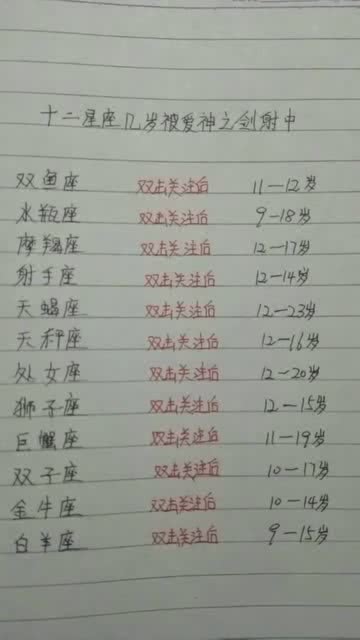 十二星座几岁被爱神之剑射中
双鱼座 双击关注后 11—12岁
水瓶座 双击关注后 9—18岁
摩羯座 双击关注后 12—17岁
射手座 双击关注后 12—14岁
天蝎座 双击关注后 12—23岁
天秤座 双击关注后 12—16岁
处女座 双击关注后 12—20岁
狮子座 双击关注后 12—15岁
巨蟹座 双击关注后 11—19岁
双子座 双击关注后 10—17岁
金牛座 双击关注后 10—14岁
白羊座 双击关注后 9—15岁